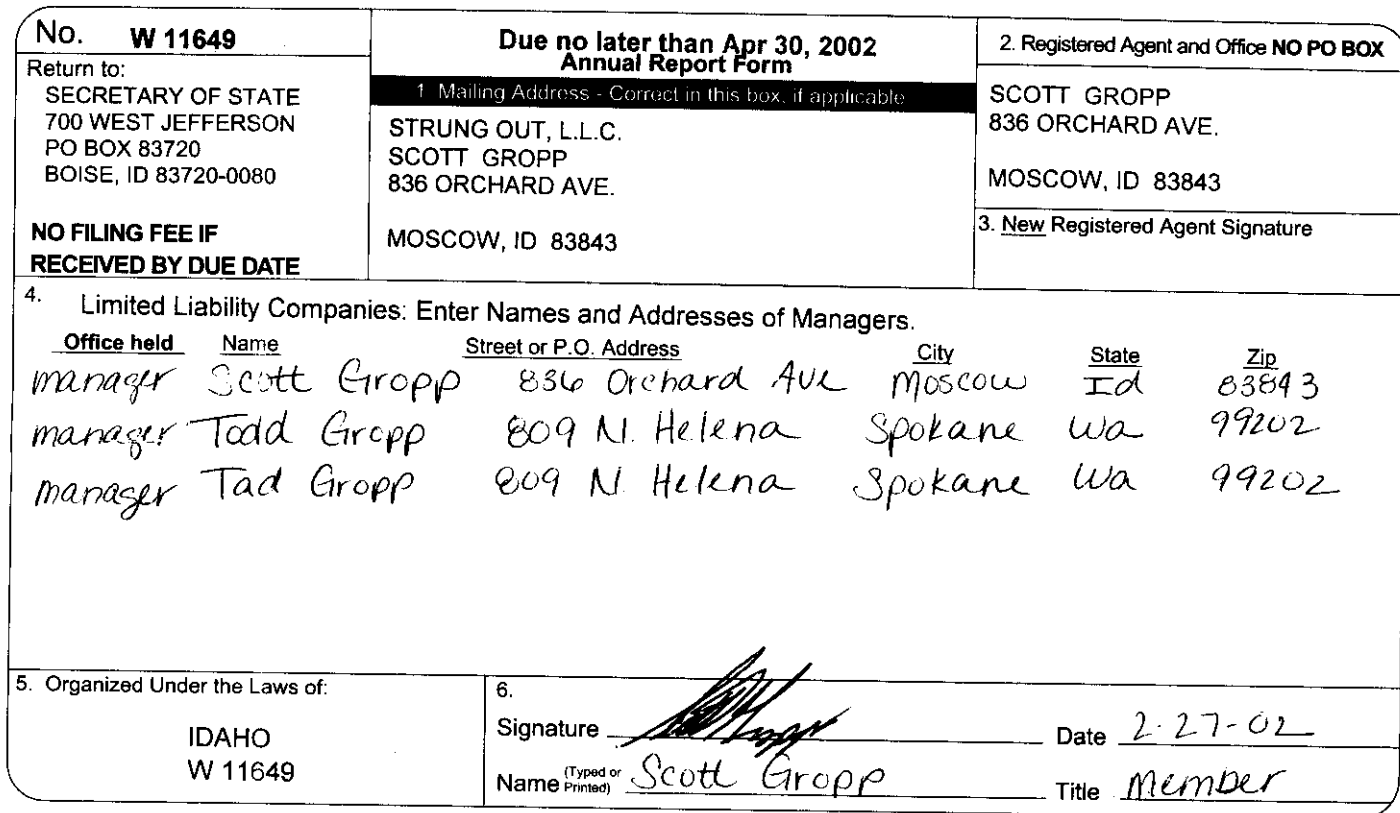 No. W 11649
Return to:
SECRETARY OF STATE
700 WEST JEFFERSON
PO BOX 83720
BOISE, ID 83720-0080
NO FILING FEE IF
RECEIVED BY DUE DATE
Due no later than Apr 30, 2002
Annual Report Form
1 Mailing Address - Correct in this box, if applicable
STRUNG OUT, L.L.C.
SCOTT GROPP
836 ORCHARD AVE.
MOSCOW, ID 83843
2. Registered Agent and Office NO PO BOX
SCOTT GROPP
836 ORCHARD AVE.
MOSCOW, ID 83843
3. New Registered Agent Signature
4. Limited Liability Companies: Enter Names and Addresses of Managers.
Office held Name Street or P.O. Address City State Zip
manager Scott Gropp 836 Orchard Ave Moscow Id 83843
manager Todd Gropp 809 N. Helena Spokane Wa 99202
manager Tad Gropp 809 N. Helena Spokane Wa 99202
5. Organized Under the Laws of:
IDAHO
W 11649
6.
Signature
Date 2-27-02
Name (Typed or Printed) Scott Gropp
Title Member